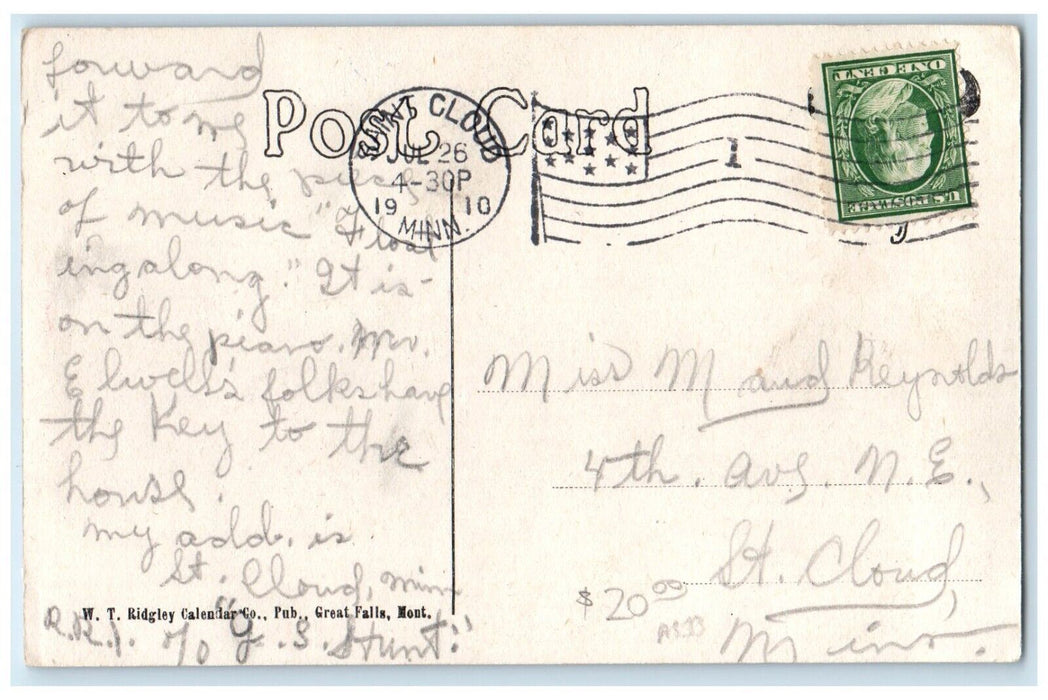 forward
it to me
with the piece
of music "Float
ing along." It is
on the piano. Mr.
Elwell's folks have
the Key to the
house.
my add. is
St. Cloud, Minn
R.R.1. c/o "G. S. Stunt."
Post Card
SAINT CLOUD
JUL 26
4-30P
19 10
MINN.
1
U.S. POSTAGE
ONE CENT
Miss Maud Reynolds
4th. Ave. N. E.,
St. Cloud,
Minn.
$20.00
W. T. Ridgley Calendar Co., Pub., Great Falls, Mont.